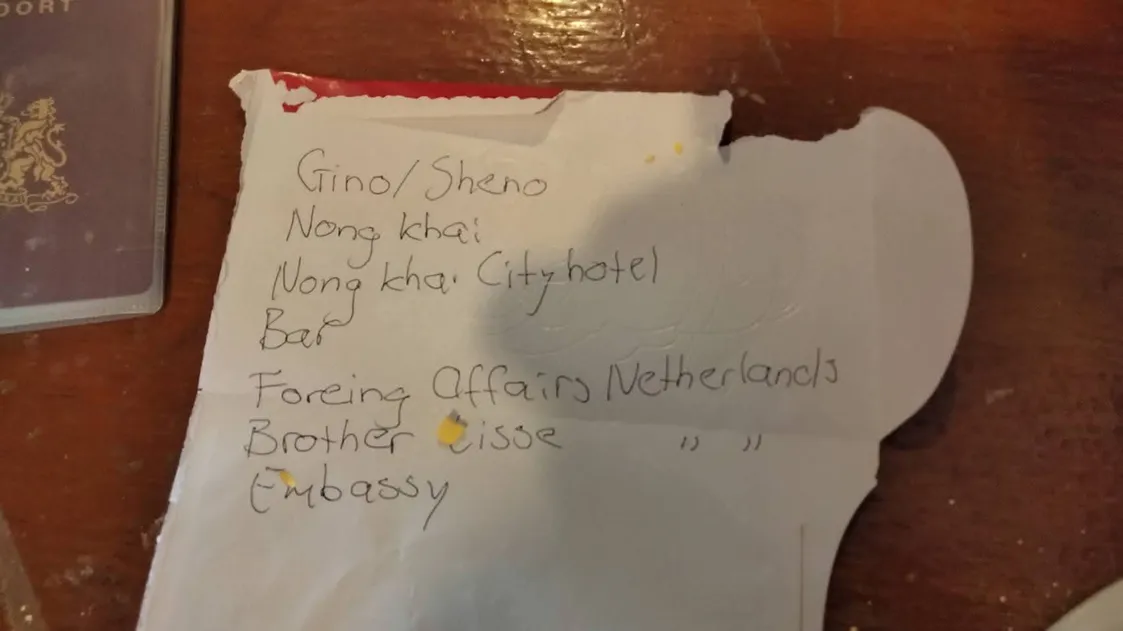 PORT
Gino/Sheno
Nong khai
Nong khai City hotel
Bar
Foreing Affairs Netherlands
Brother isse " "
Embassy